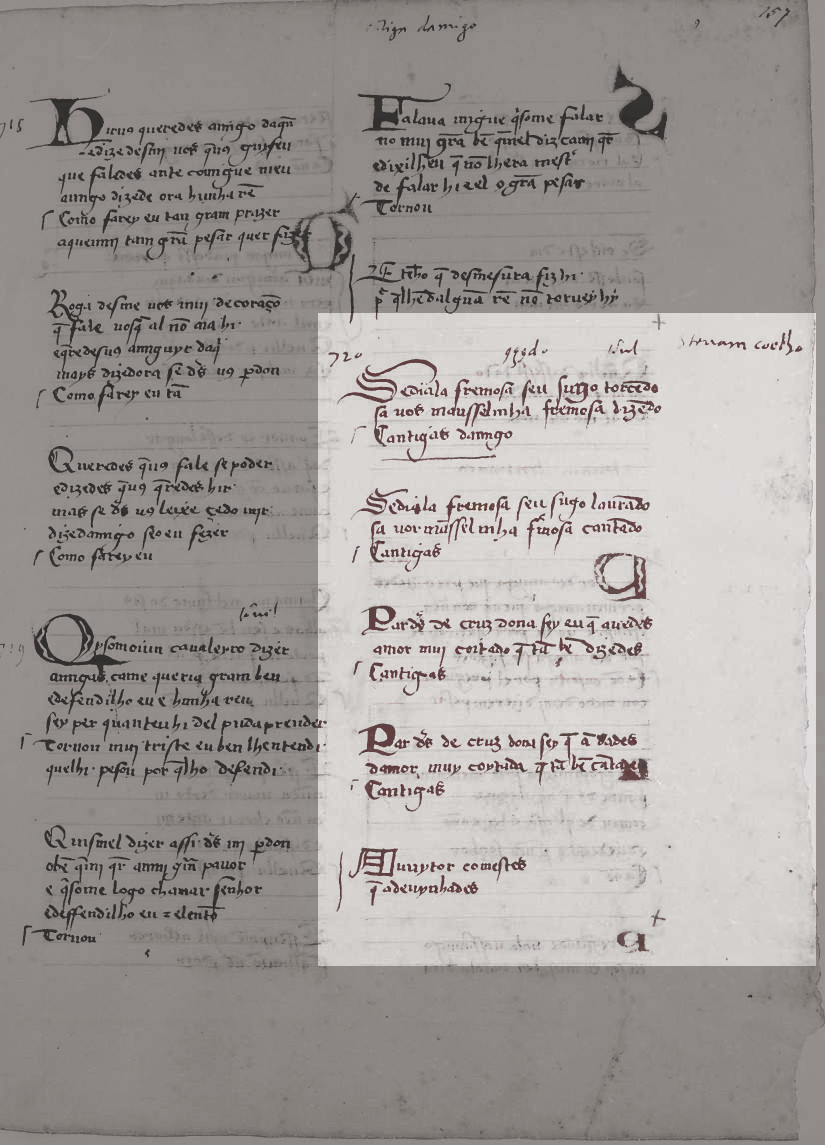 157
715
Hirus queredes amigo daquē
edizedesmi uos q̄us guyseu
que faledes ante comigue meu
amigo dizede ora hunha rē
Como farey eu tan gram prazer
aquemmi tam grā pesar quer fazer
Roga desme uos mui decoraçō
q̄ fale uosq̄ al nō mahi
eq̄redesus amiguyr daq̄
mays dizedora se d's us ꝑdon
Como farey eu tā
Queredes q̄us fale se poder
edizedes q̄us q̄redes hir
mas se d's us leixe çedo uijr
dizedamigo seo eu fezer
Como farey eu
Oysomoiun caualeyro dizer
amigas came queria gram ben
edefendilho eu e hunha ren
sey per quanteuhi del puda prender
Tornou mui triste eu ben lhentendi
quelhi pesou por q̄lho defendi
Quismel dizer assi d's mi ꝑdon
obē q̄mi q̄r ammj grā pauor
e q̄some logo chamar senhor
edeffendilho eu
Tornou
Falaua migue q̄some falar
no mui grā bē q̄mel diz camj q̄r
edixilheu q̄ nō lhera mest'
de falar hi e el ogrā pesar
Tornou
E tēho q̄ desmesura fiz hi
nō toruey hy
720
Steuam coelho
Sediala fremosa seu sirgo torcēdo
sa uos mansselinha fremosa dizēdo
Cantigas damigo
Sediala fremosa seu sirgo laurādo
sa uos manssel inha f'mosa cantādo
Cantigas
Par d's de cruz dona sey eu q̄ auedes
amor mui coitado q̄ tā bē dizedes
Cantigas
Par d's de cruz dona sey q̄ ādades
damor muy coytada q̄ tā bē cātades
Cantigas
Auuytor comestes
q̄ adeuynhades